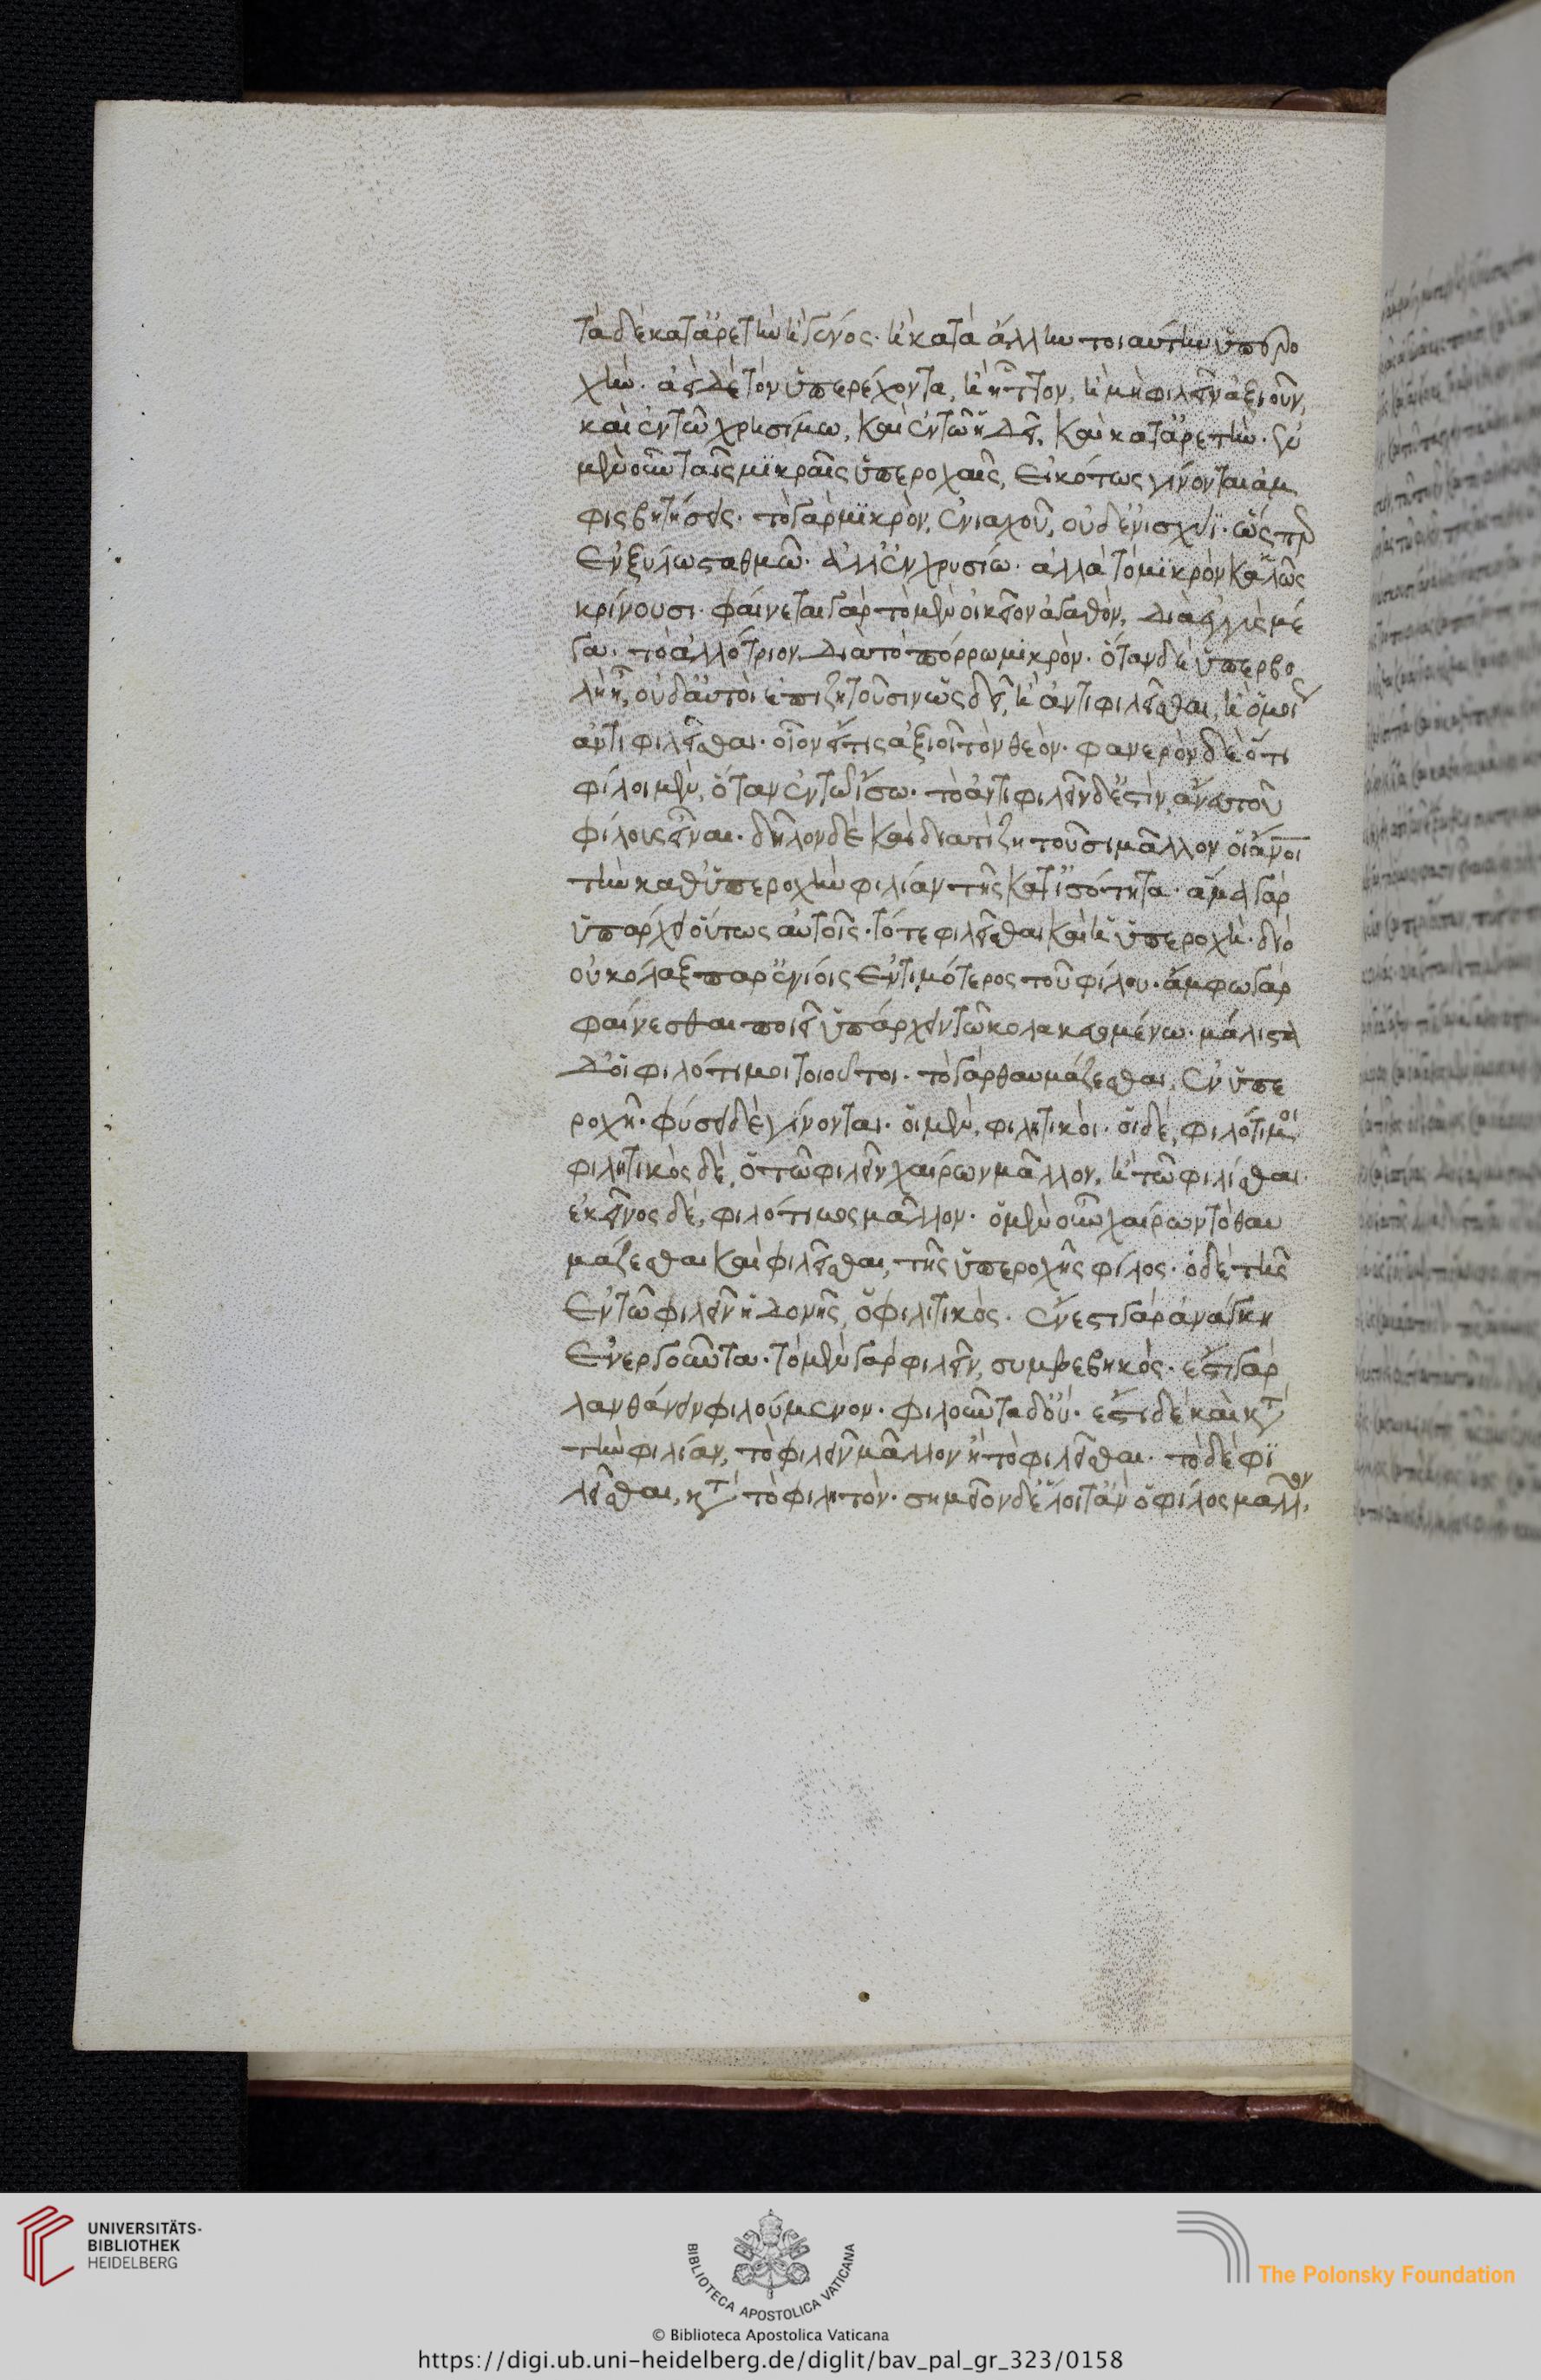 τὰ δὲ κατ' ἀρετὴν ἢ γένος· ἢ κατὰ ἄλλην τοιαύτην ὑπερο
χήν· ἀεὶ δὲ τὸν ὑπερέχοντα, ἢ ἧττον, ἢ μὴ φιλεῖν ἀξιοῦν,
καὶ ἐν τῶ χρησίμω, καὶ ἐν τῶ ἡδεῖ, καὶ κατ' ἀρετήν· ἐν
μὲν οὖν ταῖς μικραῖς ὑπεροχαῖς, εἰκότως γίνονται ἀμ
φισβητήσεις· τὸ γὰρ μικρὸν, ἐνιαχοῦ, οὐδὲν ἰσχύει· ὥσπερ
ἐν ξύλω σταθμῶ· ἀλλ' ἐν χρυσίω· ἀλλὰ τὸ μικρὸν κακῶς
κρίνουσι· φαίνεται γὰρ τὸ μὲν οἰκεῖον ἀγαθὸν, διὰ ἐγγὺς μέ
γα· τὸ ἀλλότριον διὰ τὸ πόρρω μικρὸν· ὅταν δὲ ὑπερβο
λὴ ἦ, οὐδ' αὐτοὶ ἐπιζητοῦσιν ὡς δεῖ, ἢ ἀντιφιλεῖσθαι, ἢ ὁμοίως
ἀντιφιλεῖσθαι· οἷον εἴ τις ἀξιοῖ τὸν θεὸν· φανερὸν δὲ ὅτι
φίλοι μὲν, ὅταν ἐν τῶ ἴσω· τὸ ἀντιφιλεῖν δ' ἔστιν ἄνευ τοῦ
φίλους εἶναι· δῆλον δὲ καὶ διατί ζητοῦσι μᾶλλον οἱ ἄνοι
τὴν καθ' ὑπεροχὴν φιλίαν τῆς κατ' ἰσότητα· ἅμα γὰρ
ὑπάρχει οὕτως αὐτοῖς· τό τε φιλεῖσθαι καὶ ἡ ὑπεροχή· διὸ
οὐ κόλαξ παρ' ἐνίοις ἐντιμότερος τοῦ φίλου· ἄμφω γὰρ
φαίνεσθαι ποιεῖ ὑπάρχειν τῶ κολακευομένω· μάλιστα
δ' οἱ φιλότιμοι τοιοῦτοι· τὸ γὰρ θαυμάζεσθαι, ἐν ὑπε
ροχῆ· φύσει δὲ γίνονται· οἱ μὲν, φιλητικὸι· οἱ δὲ, φιλότιμοι·
φιλητικὸς δὲ, ὁ τῶ φιλεῖν χαίρων μᾶλλον, ἢ τῶ φιλίσθαι·
ἐκεῖνος δὲ, φιλότιμος μᾶλλον· ὁ μὲν οὖν χαίρων τὸ θαυ
μάζεσθαι καὶ φιλεῖσθαι, τῆς ὑπεροχῆς φίλος· ὁ δὲ τῆς
ἐν τῶ φιλεῖν ἡδονῆς, ὁ φιλιτικὸς· ἔνεστι γὰρ ἀνάγκη
ἐνεργοῦντα· τὸ μὲν γὰρ φιλεῖν, συμβεβηκὸς· ἔστι γὰρ
λανθάνειν φιλούμενον· φιλοῦντα δ' οὔ· ἔστι δὲ καὶ κατὰ
τὴν φιλίαν, τὸ φιλεῖν μᾶλλον ἢ τὸ φιλεῖσθαι· τὸ δὲ φι
λεῖσθαι, κατὰ τὸ φιλητὸν· σημεῖον δὲ ἕλοιτ' ἂν ὁ φίλος μᾶλλον,